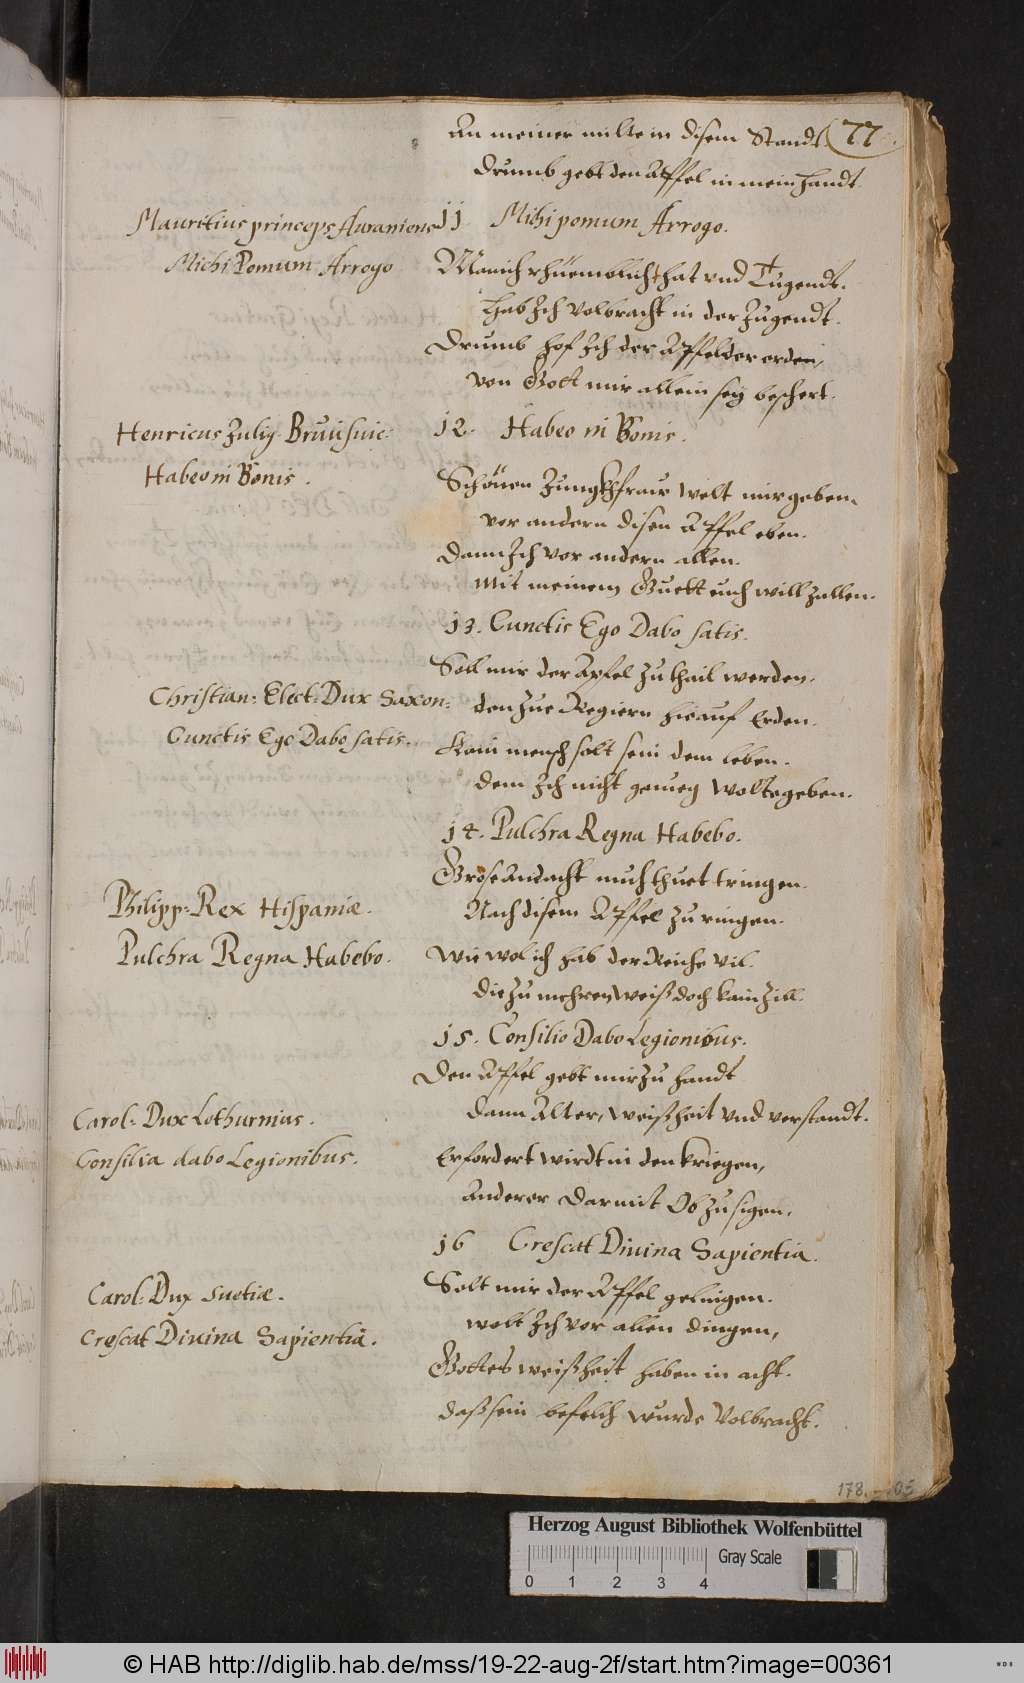 An meiner milte in disem Standt 77
Drumb gebt den Apffel in mein handt.
Mauritius princeps Auraniens 11 Mihi pomum Arrogo.
Michi Pomum Arrogo
Manich rhüemblich that vnd Tugendt.
Hab Ich volbracht in der Jugendt.
Drumb hof Ich der Apffel der erden,
von Gott mir allein sey beschert.
Henricus Julig Brunsuic: 12. Habeo in Bonis.
Habeo in Bonis.
Schönen Jungkhfraw welt mir geben
vor andern disen Apffel eben.
Dann Ich vor andern allen.
Mit meinem Guett euch will zallen.
13. Cunctis Ego Dabo satis.
Soll mir der Apfel zu thail werden.
Christian: Elect: Dux Saxon: den zue Regiern hie auf Erden.
Cunctis Ego Dabo satis. Kain mensch solt sein dem leben.
dem Ich nicht genueg wolte geben.
14. Pulchra Regna Habebo.
Grose Andacht mich thuet tringen.
Philipp: Rex Hispaniæ. Nach disem Apffel zu ringen.
Pulchra Regna Habebo. Wie wol ich hab der Reiche vil.
die zu mehren weiß doch kain Zill.
15. Consilio Dabo Legionibus.
Den Apffel gebt mir zu handt
Carol: Dux Lothurnias. dann Alter, weißheit vnd verstandt.
Consilia dabo Legionibus. Erfordert wirdt in den kriegen,
Anderer darmit Ob zu sigen.
16 Crescat Diuina Sapientia.
Carol: Dux Suetiæ. Solt mir der Apffel gelingen.
Crescat Diuina Sapientia. wolt Ich vor allen dingen,
Gottes weißheit haben in acht.
daß sein befelch wurde Volbracht.
178.
Herzog August Bibliothek Wolfenbüttel
Gray Scale
0 1 2 3 4
© HAB http://diglib.hab.de/mss/19-22-aug-2f/start.htm?image=00361